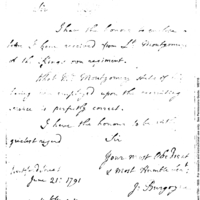 Sir
I have the honor to enclose a
letter I have received from Lt Montgomery
of the Kings own regiment.
What Lt Montgomery states of
being employed upon the recruiting
service is perfectly correct.
I have the honour to be with
greatest regard
Sir
Your most Obedient
& most humble
J. Burgoyne
June 21st 1791